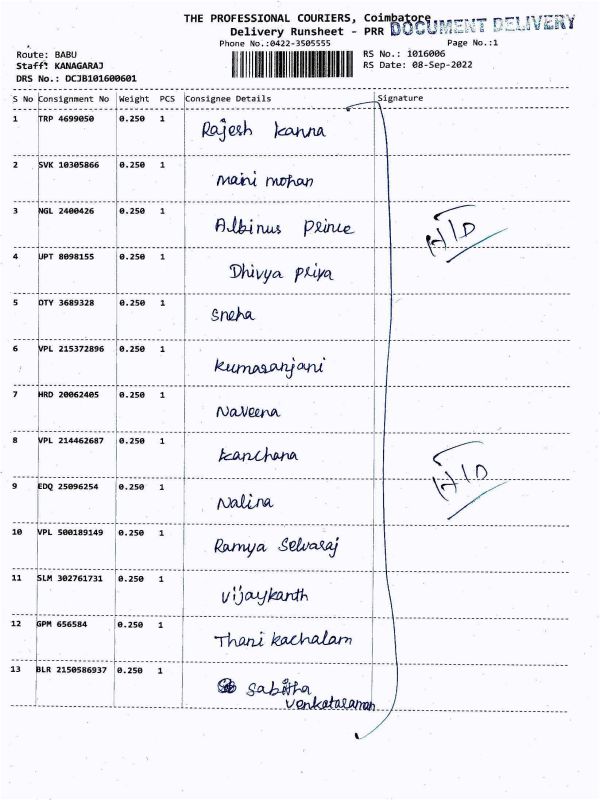 THE PROFESSIONAL COURIERS, Coimbatore
DOCUMENT DELIVERY
Delivery Runsheet - PRR
Phone No.:0422-3505555 Page No.:1
Route: BABU RS No.: 1016006
Staff: KANAGARAJ RS Date: 08-Sep-2022
DRS No.: DCJB101600601
S No Consignment No Weight PCS Consignee Details Signature
1 TRP 4699050 0.250 1 Rajesh Kanna
2 SVK 10305866 0.250 1 Mani mohan
3 NGL 2400426 0.250 1 Albinus Prince
4 UPT 8098155 0.250 1 Dhivya Priya
5 OTY 3689328 0.250 1 Sneha
6 VPL 215372896 0.250 1 Kumaranjani
7 HRD 20062405 0.250 1 Naveena
8 VPL 214462687 0.250 1 Kanchana
9 EDQ 25096254 0.250 1 Nalina
10 VPL 500189149 0.250 1 Ramya Selvaraj
11 SLM 302761731 0.250 1 Vijaykanth
12 GPM 656584 0.250 1 Thani kachalam
13 BLR 2150586937 0.250 1 Sabitha
Venkataraman